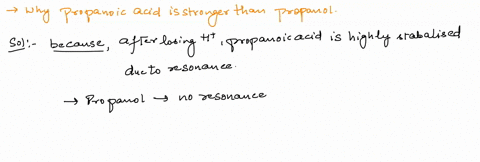 → Why propanoic acid is stronger than propanol.
Sol:- because, after losing H⁺, propanoic acid is highly stabalised
due to resonance.
→ Propanol → no resonance